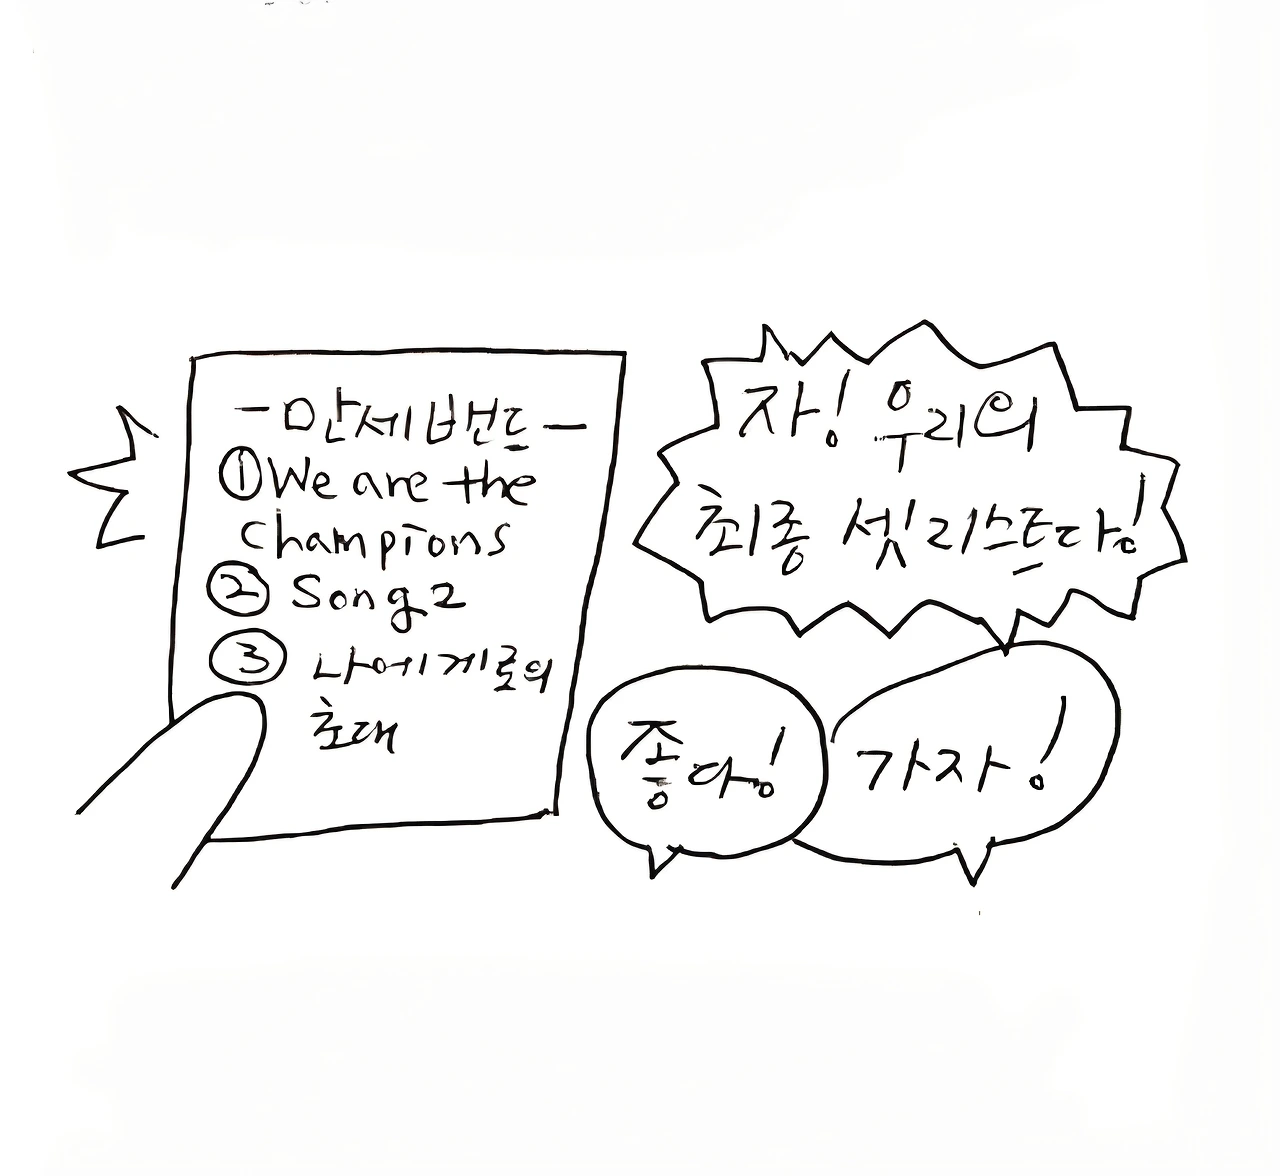 -만세밴드-
① We are the
champions
② Song 2
③ 나에게로의
초대
자! 우리의
최종 셋리스트다!
좋다!
가자!